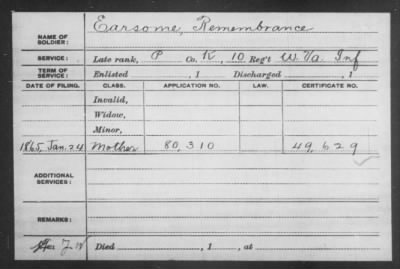 NAME OF SOLDIER: Earsome, Remembrance
SERVICE: Late rank, P Co. K, 10 Reg't W. Va. Inf
TERM OF SERVICE: Enlisted , 1 Discharged , 1
DATE OF FILING. CLASS. APPLICATION NO. LAW. CERTIFICATE NO.
Invalid,
Widow,
Minor,
1865, Jan. 24 Mother 80,310 49,629
ADDITIONAL SERVICES:
REMARKS:
Died , 1 , at